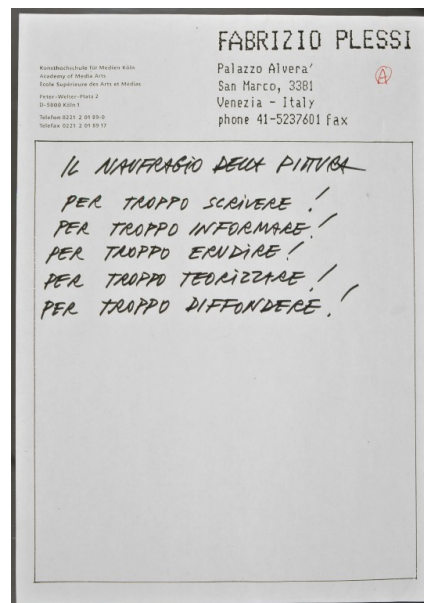 FABRIZIO PLESSI
Kunsthochschule für Medien Köln
Academy of Media Arts
Ecole Superieure des Arts et Médias
Peter-Welter-Platz 2
D-5000 Köln 1
Telefon 0221 2 01 89-0
Telefax 0221 2 01 89 17
Palazzo Alvera'
San Marco, 3381
Venezia - Italy
phone 41-5237601 fax
A
IL NAUFRAGIO DELLA PITTURA
PER TROPPO SCRIVERE!
PER TROPPO INFORMARE!
PER TROPPO ERUDIRE!
PER TROPPO TEORIZZARE!
PER TROPPO DIFFONDERE!